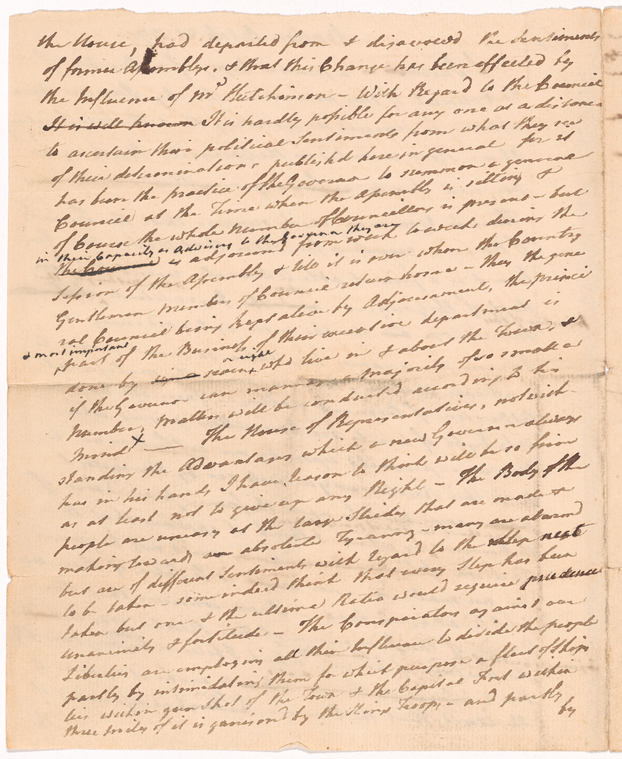 the House, had departed from & disavowd the Sentiments
of former Assemblys, & that this Change has been effected by
the Influence of Mr Hutchinson - With Regard to the Council
It is well known It is hardly possible for any one at a distance
to ascertain their political Sentiments from what they see
of their determinations publishd here in general for it
has been the practice of the Governor to summon a general
Council at the Time when the Assembly is sitting &
of Course the whole Number of Councillors is present - but
in their Capacity as Advisers to the Governor they are
The Council is adjournd from week to week during the
Session of the Assembly & till it is over when the Country
Gentlemen Members of Council return home - thus the gene
ral Council being kept alive by Adjournments, the princi
& most important
part of the Business of their executive department is
done by seven or eight who live in & about the Town, &
if the Governor can manage a Majority of so small a
Number, Matters will be conducted according to his
mind x — The House of Representatives, notwith-
standing the Advantages which a new Governor always
has in his hands I have reason to think will be so firm
as at least not to give up any Right - The Body of the
people are uneasy at the large Strides that are made &
making towards an absolute Tyranny - many are alarmd
but are of different Sentiments with regard to the Step next
to be taken - some indeed think that every Step has been
taken but one & the ultima Ratio would require prudence
unanimity & fortitude - The Conspirators against our
Liberties are employing all their Influence to divide the people
partly by intimidating them for which purpose a fleet of Ships
lies within gun Shot of the Town & the Capital Fort within
three miles of it is garrisond by the Kings Troops - and partly
by